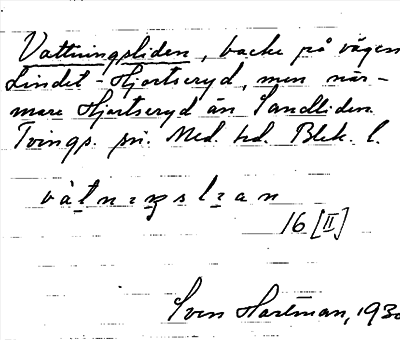 Vattningsliden, backe på vägen
Lindet - Hjortseryd, men när-
mare Hjortseryd än Sandliden.
Tvings sn. Med. hd. Blek. l.
16 [II]
Sven Hartman, 193